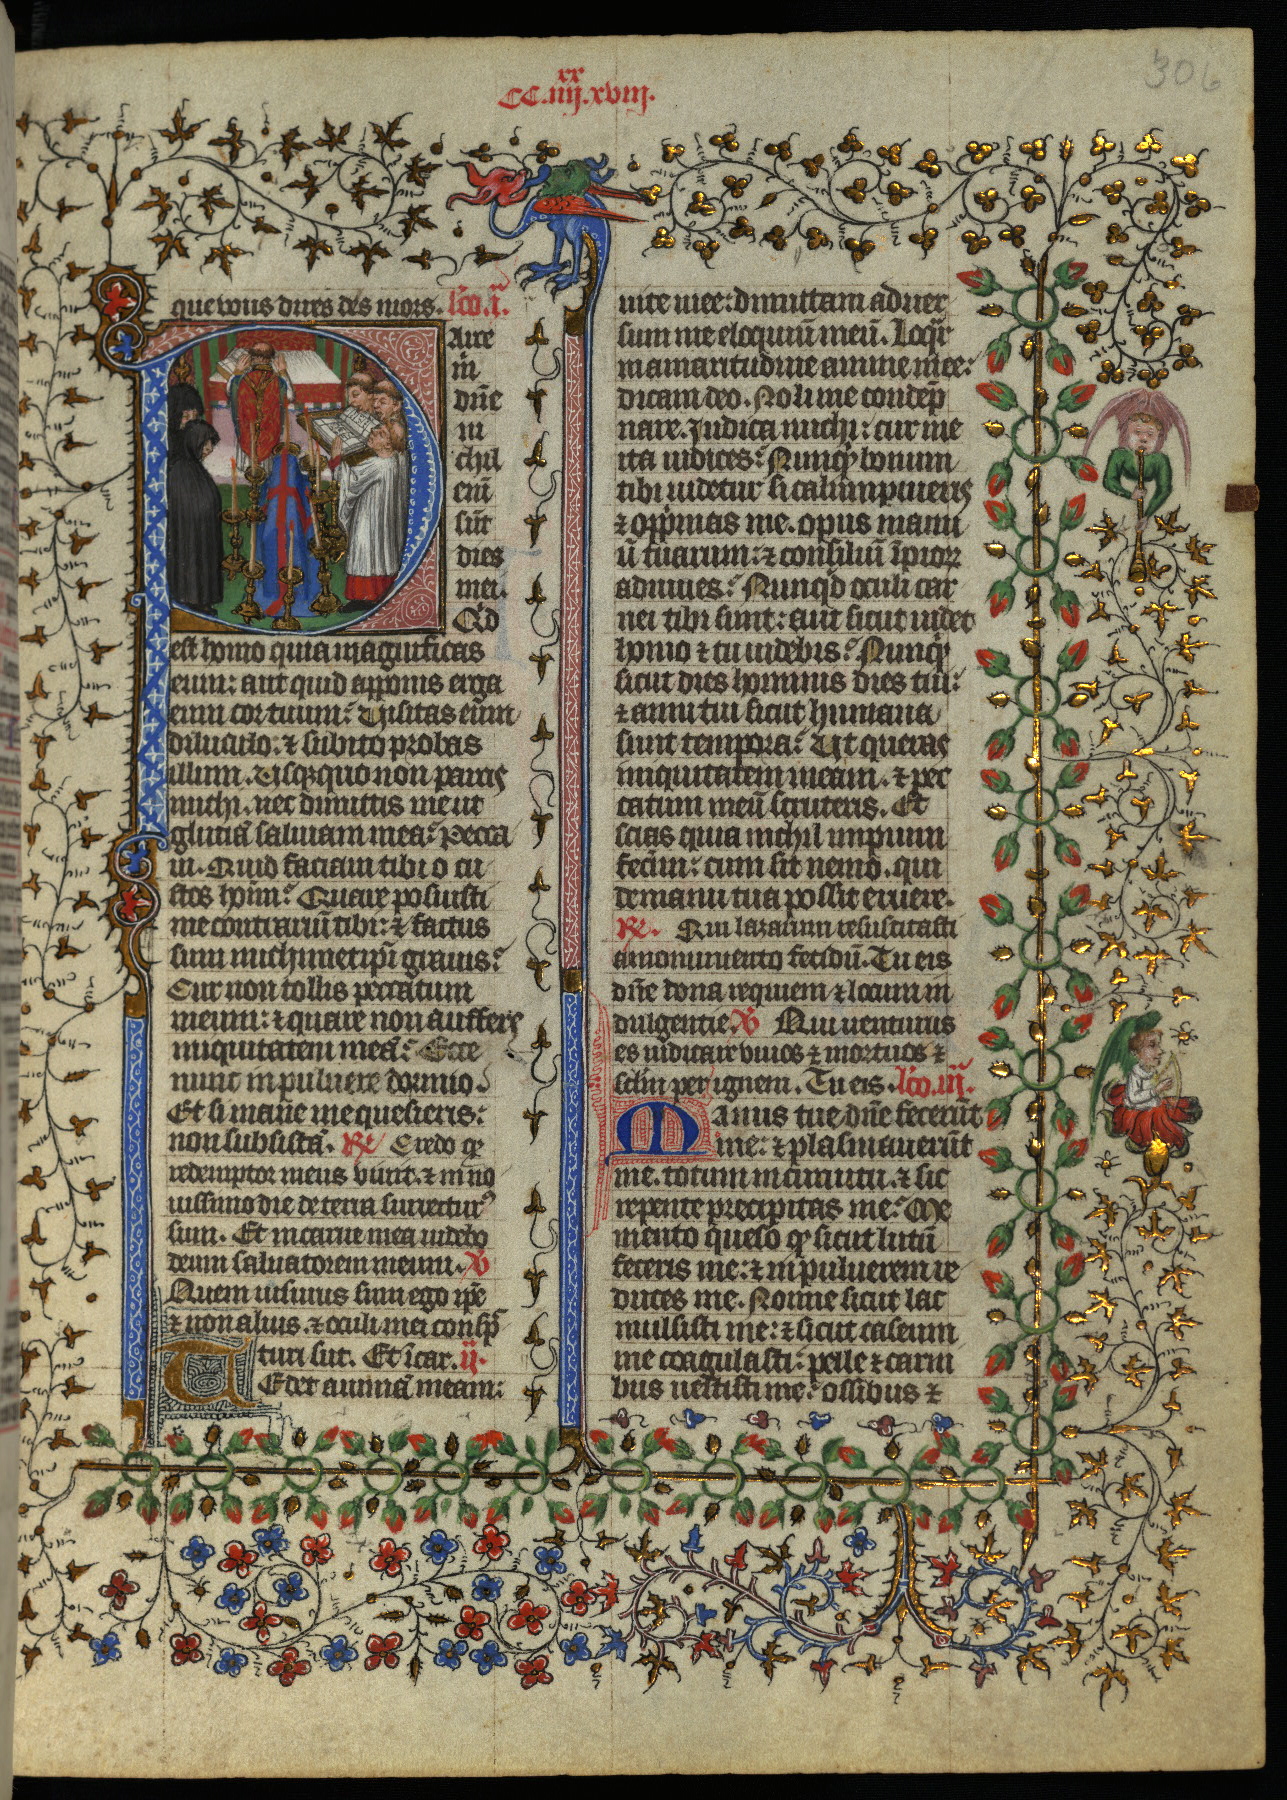 xx
CC.iiij.xviij.
306
que vous dires des mors. lc̃o.i.
Arce
m̄
dñe
ni
chil
enī
sūt
dies
mei.
Qd̄
est homo quia magnificas
eum: aut quid apponis erga
eum cor tuum: Visitas eum
diluculo: ⁊ subito probas
illum. Usq3quo non parcis
michi. nec dimittis me ut
glutiā salivam meā: Pecca
vi. Quid faciam tibi o cu
stos homī: Quare posuisti
me contrariū tibi: ⁊ factus
sum michimetip̄i gravis:
Cur non tollis peccatum
meum: ⁊ quare non auffers
iniquitatem meā: Ecce
nunc in pulvere dormio.
Et si mane me quesieris:
non subsistā. R̷ Credo q̄
redemptor meus vivit. ⁊ in no
vissimo die de terra surrectur9
sum. Et in carne mea videbo
deum salvatorem meum. V̷
Quem visurus sum ego ip̄e
⁊ non alius. ⁊ oculi mei consp̄
turi sūt. Et ī car. ij.
Tedet animā meam:
vite mee: dimittam adver
sum me eloquiū meū. Loq̄r
in amaritudine anime mee:
dicam deo. Noli me contēp
nare. Judica michi: cur me
ita iudices: Nunq̄d bonum
tibi videtur si calūmpnieris
⁊ opp̄mas me. opus manu
ū tuarum: ⁊ consiliū īpioꝝ
adiuves: Nunq̄d oculi car
nei tibi sunt: aut sicut videt
homo ⁊ tu videbis: Nunq̄d
sicut dies hominis dies tui:
⁊ anni tui sicut humana
sunt tempora: Ut queras
iniquitatem meam. ⁊ pec
catum meū scruteris. Et
scias quia nichil impium
fecim: cum sit nemo. qui
de manu tua possit eruere.
R̷. Qui lazarum resuscitasti
a monumento fetidū. Tu eis
dñe dona requiem ⁊ locum in
dulgentie. V̷ Qui venturus
es iudicare vivos ⁊ mortuos ⁊
sc̄lm per ignem. Tu eis. lc̃o.iij.
Manus tue dñe fecerūt
me: ⁊ plasmaverūt
me. totum in circuitu. ⁊ sic
repente precipitas me: Me
mento queso q̄ sicut lutū
feceris me: ⁊ in pulverem re
duces me. Nonne sicut lac
mulsisti me: ⁊ sicut caseum
me coagulasti: pelle ⁊ carni
bus vestisti me: ossibus ⁊